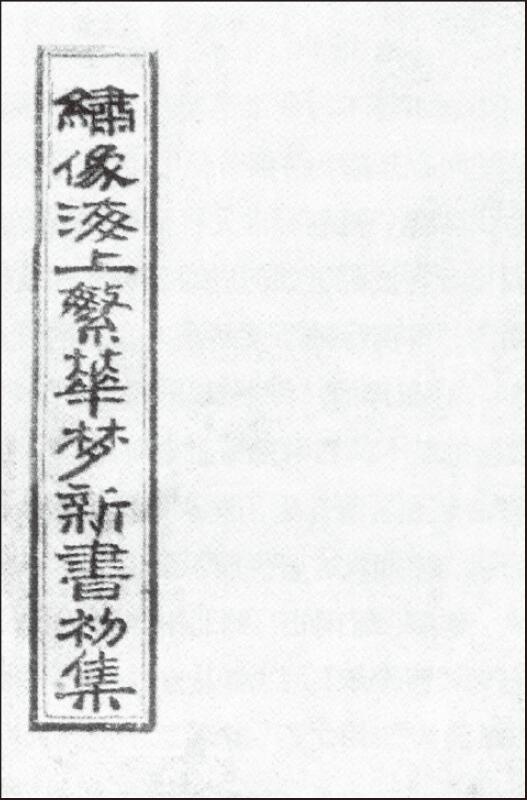 繡像海上繁華梦新書初集